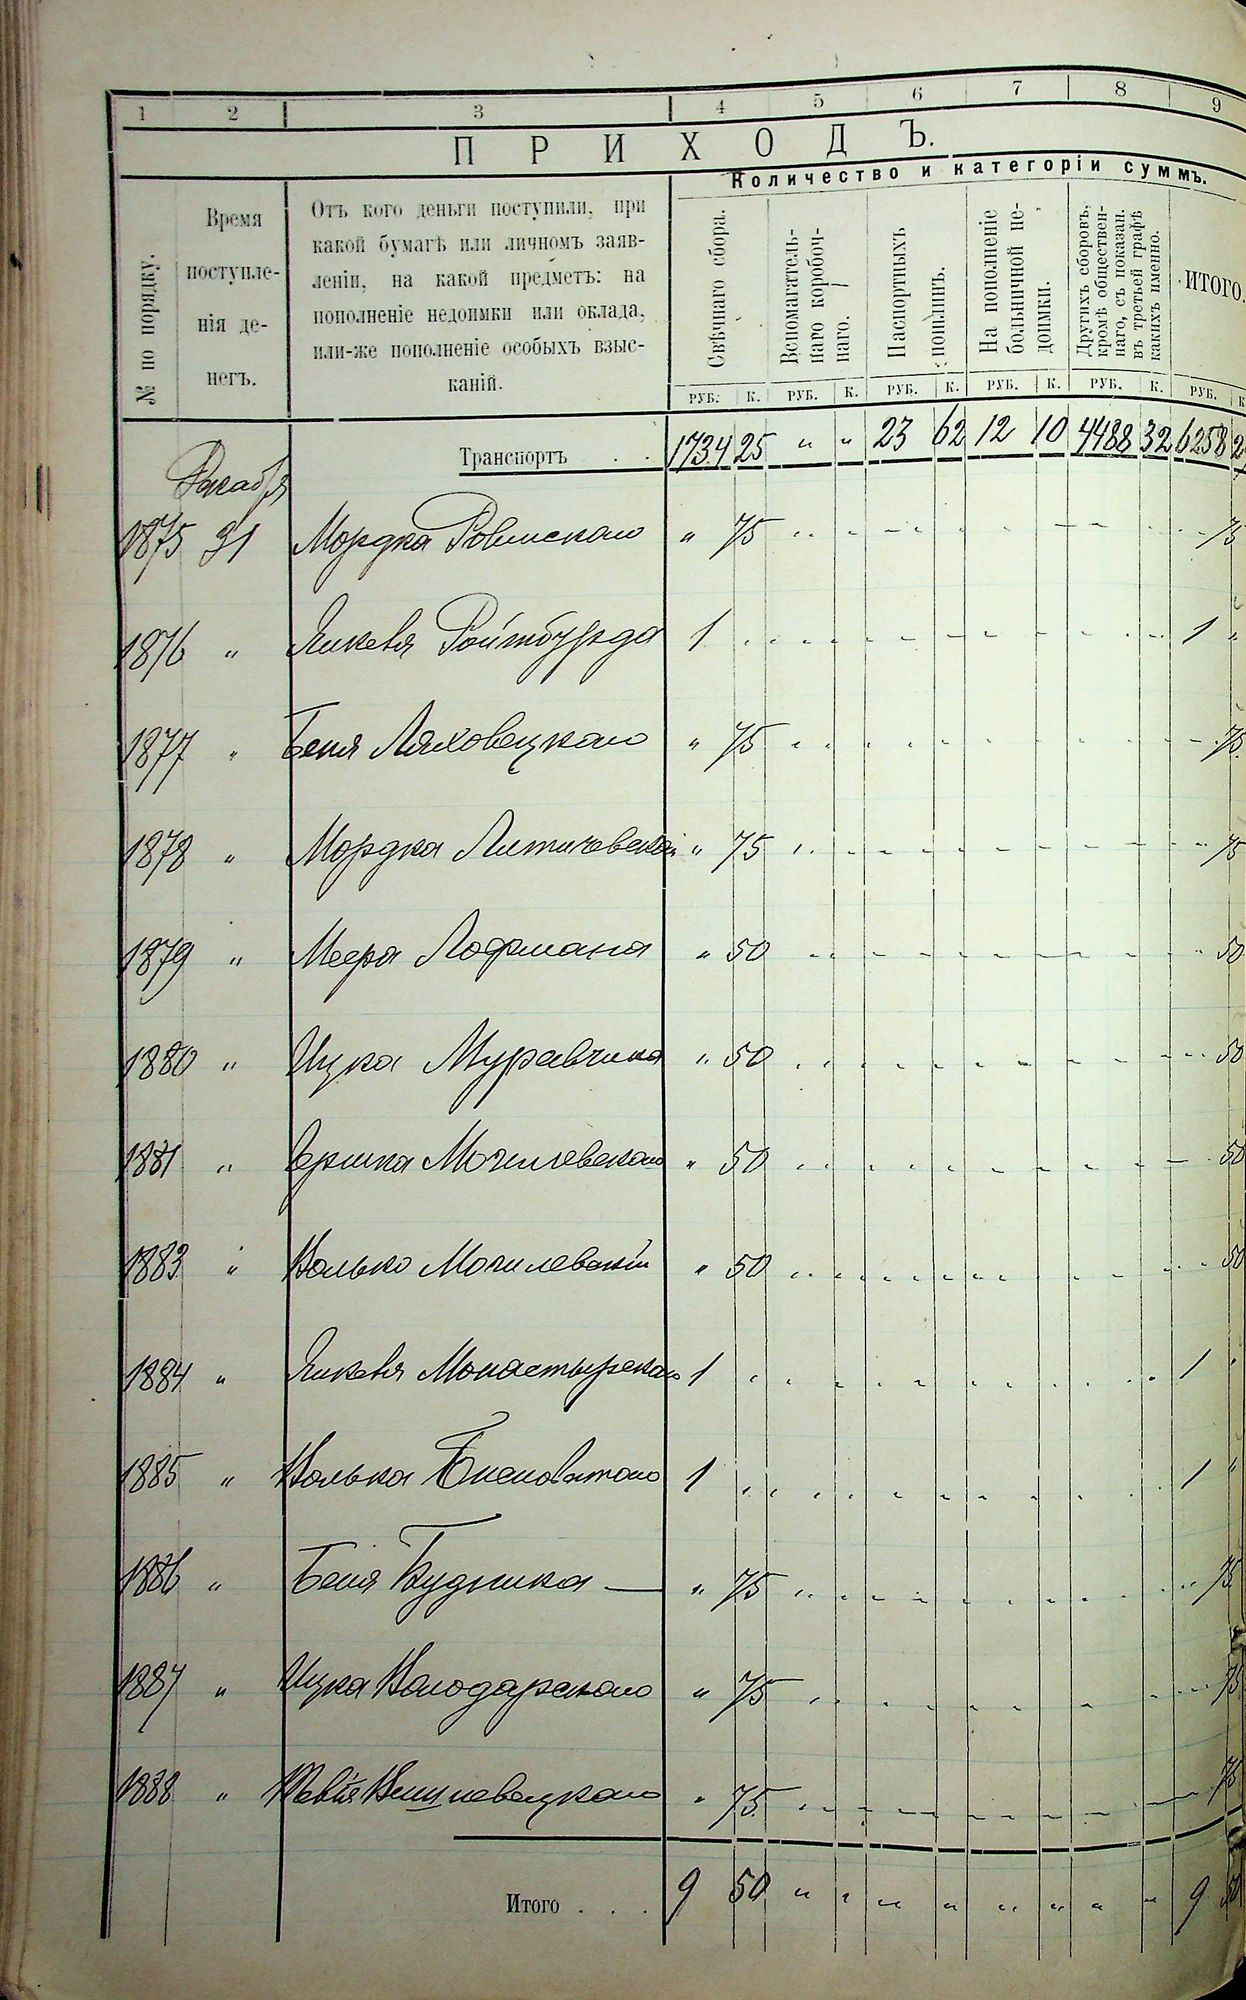 1 2 3 4 5 6 7 8 9
ПРИХОДЪ.
Количество и категоріи суммъ.
№ по порядку.
Время
поступле-
нія де-
негъ.
Отъ кого деньги поступили, при
какой бумагѣ или личномъ заяв-
леніи, на какой предметъ: на
пополненіе недоимки или оклада,
или-же пополненіе особыхъ взыс-
каній.
Свѣчнаго сбора.
Вспомагатель-
наго коробоч-
наго.
Паспортныхъ
пошлинъ.
На пополненіе
больничной не-
доимки.
Другихъ сборовъ,
кромѣ обществен-
наго, съ показан.
въ третьей графѣ
какихъ именно.
ИТОГО.
РУБ. К. РУБ. К. РУБ. К. РУБ. К. РУБ. К. РУБ. К
Транспортъ . . 1734 25 " " 23 62 12 10 4488 32 6258 2
Декабря
1875 31 Мордка Ровинскаго " 75 75
1876 " Янкеля Ройтбурда 1 1 "
1877 " Беня Ляховецкаго " 75 75
1878 " Мордка Литичевскаго " 75 75
1879 " Меера Лофмана " 50 50
1880 " Ицка Муравчика " 50 50
1881 " Гершка Могилевскаго " 50 50
1883 " Волько Могилевскій " 50 50
1884 " Янкеля Монастырскаго 1 1 "
1885 " Волька 1 1 "
1886 " Беня Будника — " 75 75
1887 " Ицка Володарскаго " 75 75
1888 " Вишневецкаго " 75 75
Итого . . . 9 50 " " " " " " " " 9 50